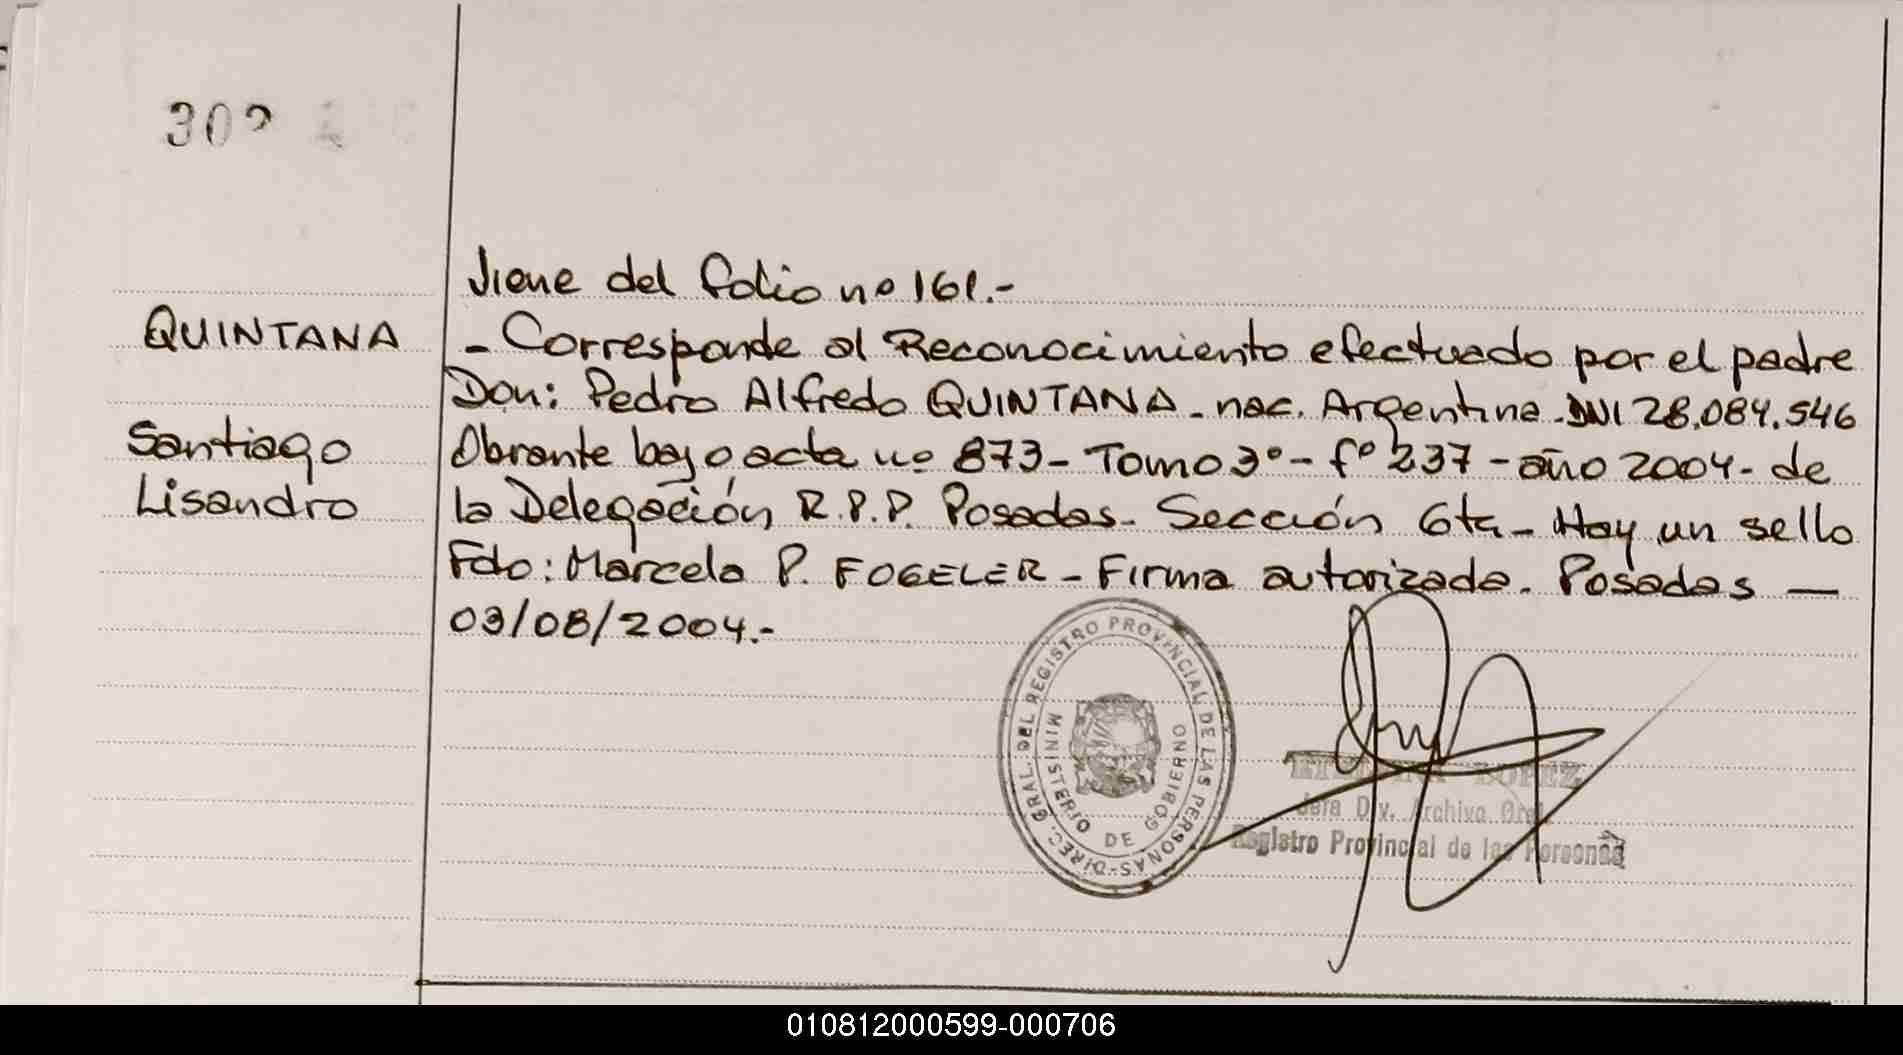 302
Viene del folio nº 161.-
QUINTANA
- Corresponde al Reconocimiento efectuado por el padre
Don: Pedro Alfredo QUINTANA - nac. Argentina - DNI 28.084.546
Santiago
Obrante bajo acta nº 873 - Tomo 3º - fº 237 - año 2004 - de
Lisandro
la Delegación R.P.P. Posadas - Sección 6ta - Hay un sello
Fdo: Marcelo P. FOGELER - Firma autorizada. Posadas —
03/08/2004.-
DIREC. GRAL. DEL REGISTRO PROVINCIAL DE LAS PERSONAS-
MINISTERIO DE GOBIERNO
LOPEZ
Jefa Div. Archivo Gral.
Registro Provincial de las Personas
010812000599-000706